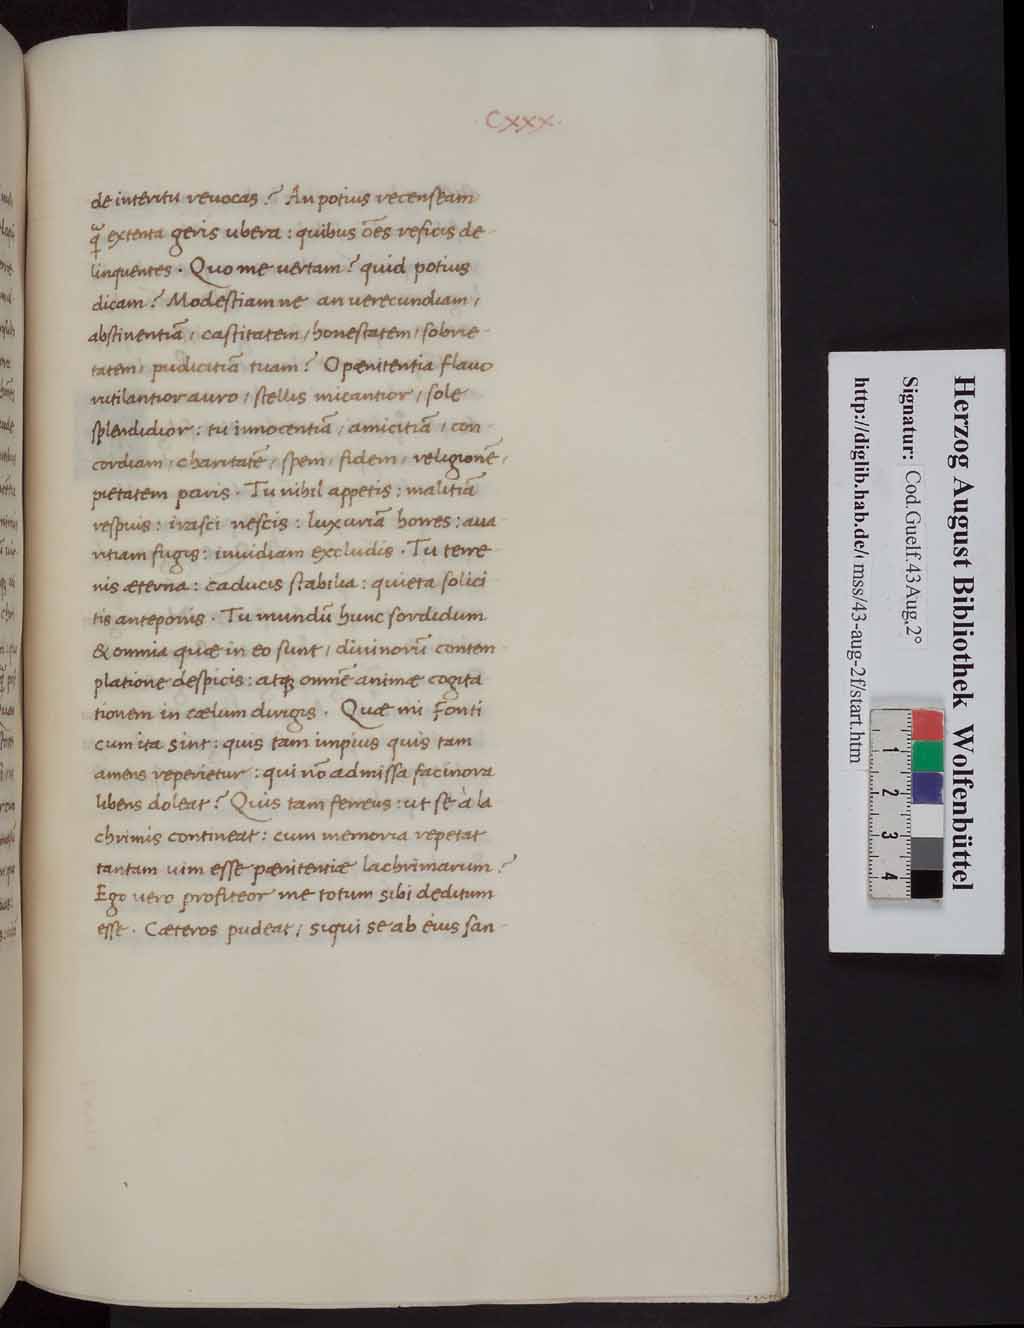 · CXXX ·
de interitu reuocas? An potius recenseam
extenta geris ubera : quibus oēs reficis de-
linquentes · Quo me uertam? quid potius
dicam? Modestiam ne an uerecundiam /
abstinentiā / castitatem / honestatem / sobrie-
tatem / pudicitiā tuam? O pœnitentia flauo
rutilantior auro / stellis micantior / sole
splendidior : tu innocentiā / amicitiā / con-
cordiam / charitatē / spem / fidem / religionē /
pietatem paris · Tu nihil appetis : malitiā
respuis : irasci nescis : luxuriā horres : aua
ritiam fugis : inuidiam excludis · Tu terre
nis æterna : caducis stabilia : quieta solici
tis anteponis · Tu mundū hunc sordidum
& omnia quæ in eo sunt / diuinorū contem-
platione despicis : atq; omnē animæ cogita
tionem in cælum dirigis · Quæ mi Fonti
cum ita sint : quis tam impius quis tam
amens reperietur : qui nō admissa facinora
libens doleat? Quis tam ferreus : ut se à la
chrimis contineat : cum memoria repetat
tantam uim esse pœnitentiæ lachrimarum?
Ego uero profiteor me totum sibi deditum
esse · Cæteros pudeat / siqui se ab eius san-
Herzog August Bibliothek Wolfenbüttel
Signatur: Cod. Guelf. 43 Aug. 2°
http://diglib.hab.de/mss/43-aug-2f/start.htm
1 2 3 4